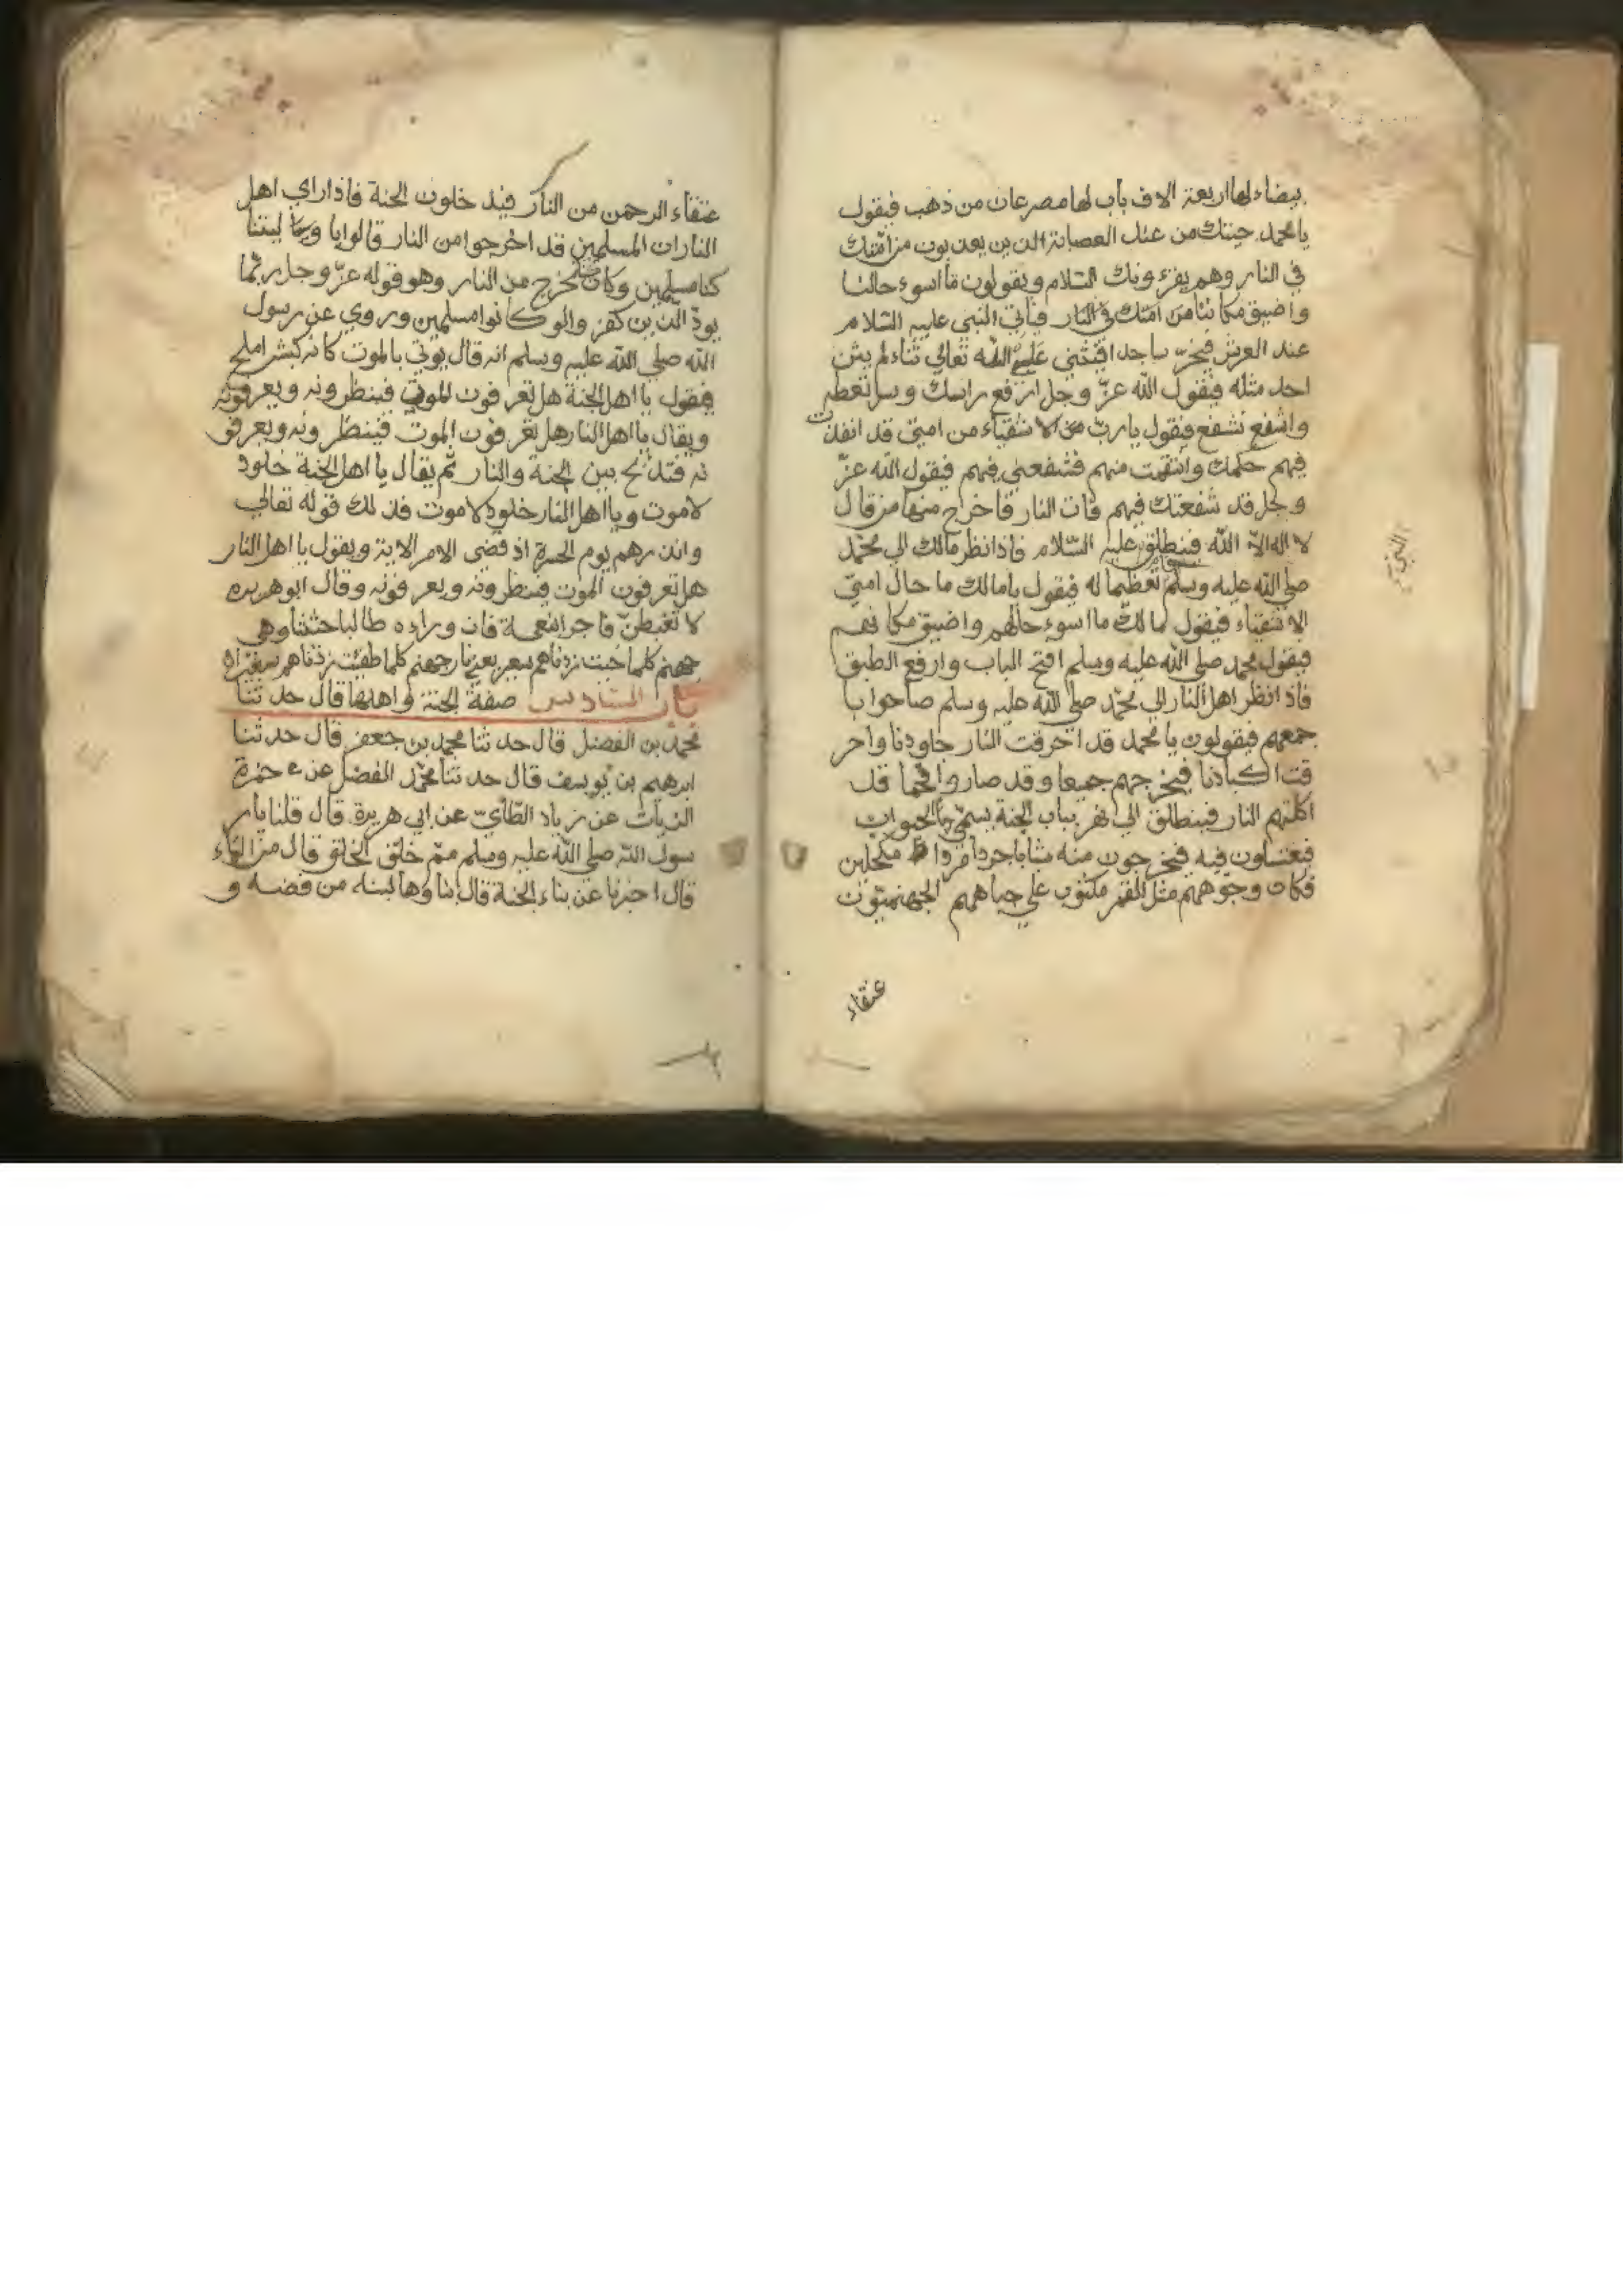 بيضاء لها اربعة الاف باب لها مصرعان من ذهب فيقول
يا محمد جيتك من عند العصابة الذين يعذبون من امتك
في النار وهم يقرءونك السلام ويقولون ما اسوء حالنا
واضيق مكاننا من امتك في النار فيأتي النبي عليه السلام
عند العرش فيخرّ ساجدا فيثني علي الله تعالي ثناء لم يثن
احد مثله فيقول الله عزّ وجل ارفع راسك وسل تعطه
واشفع تشفع فيقول يا ربّ من الاشقياء من امتي قد انفذت
فيهم حكمك وانتقمت منهم فشفعني فيهم فيقول الله عزّ
وجل قد شفعتك فيهم فات النار فاخرج منها من قال
لا اله الاّ الله فينطلق عليه السّلام فاذا نظر مالك الي محمّد
النبيّ
صلي الله عليه وسلم تعظيما له فيقول يا مالك ما حال امتيّ
الاشقياء فيقول مالك ما اسوء حالهم واضيق مكانهم
فيقول محمد صلي الله عليه وسلم افتح الباب وارفع الطبق
فاذا نظر اهل النار الي محمّد صلي الله عليه وسلم صاحوا با
جمعهم فيقولون يا محمد قد احرقت النار جلودنا واحر
قت اكبادنا فيخرجهم جميعا وقد صاروا فحما قد
اكلتهم النار فينطلق الي نهر بباب الجنة يسمّي الحيوان
فيغتسلون فيه فيخرجون منه شابا جردا مردا مكحلين
فكان وجوههم مثل القمر مكتوب علي جباههم الجهنميّون
عتقاء
عتقاء الرحمن من النار فيدخلون الجنة فاذا راي اهل
النار ان المسلمين قد اخرجوا من النار قالوا يا ليتنا
كنا مسلمين وكان نخرج من النار وهو قوله عزّ وجل ربّما
يودّ الذين كفروا لو كانوا مسلمين وروي عن رسول
الله صلي الله عليه وسلم انه قال يؤتي بالموت كانه كبش املح
فيقول يا اهل الجنة هل تعرفون الموت فينظرونه ويعرفونه
ويقال يا اهل النار هل تعرفون الموت فينظرونه ويعرفو
نه فتذبح بين الجنة والنار ثم يقال يا اهل الجنة خلود
لا موت ويا اهل النار خلود لا موت فذلك قوله تعالي
وانذرهم يوم الحسرة اذ قضي الامر الاية ويقول يا اهل النار
هل تعرفون الموت فينظرونه ويعرفونه وقال ابو هريره
لا تغبطنّ فاجرا نعمة فان وراءه طالبا حثيثا وهي
جهنم كلما خبت زدناهم سعيرا يعني نار جهنم كلما طفيت زدناهم سعيرا
باب السادس صفة الجنة واهلها قال حدثنا
محمد بن الفضل قال حدثنا محمد بن جعفر قال حدثنا
ابرهيم بن يوسف قال حدثنا محمّد المفضل عن حمزة
الزيات عن زياد الطّائيّ عن ابي هريرة قال قلنا يا ر
سول الله صلي الله عليه وسلم ممّ خلق الخلق قال من الماء
قال اخبرنا عن بناء الجنة قال بناؤها لبنة من فضة و